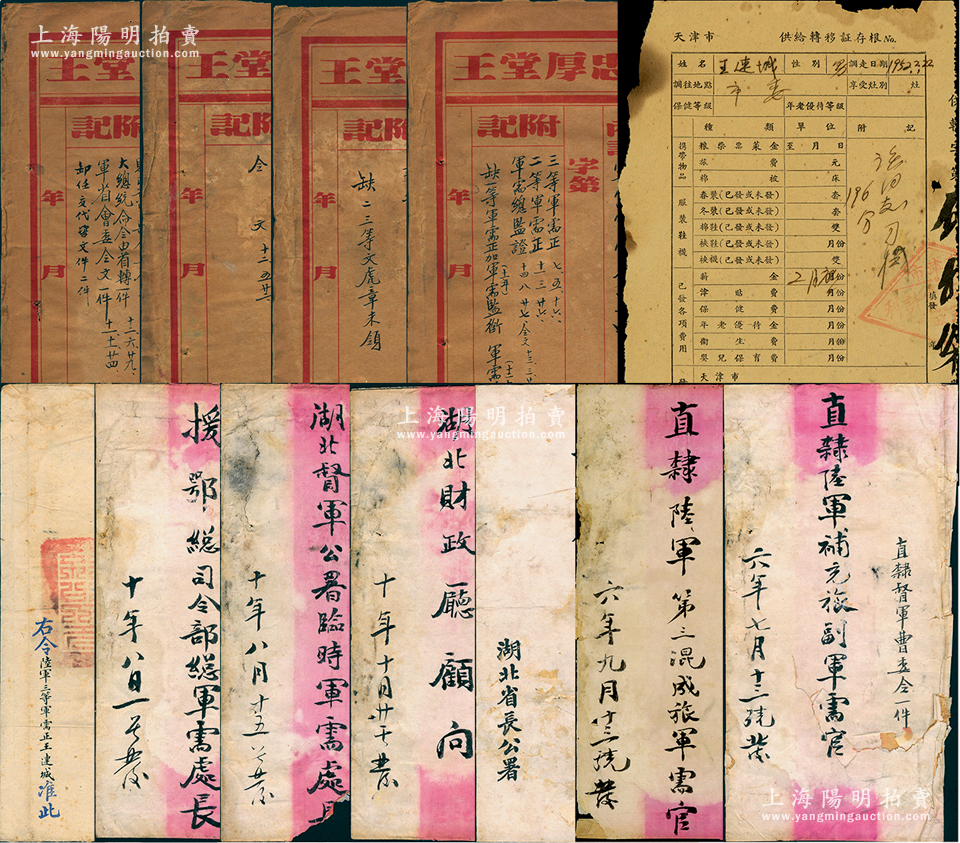 上海陽明拍賣
www.yangmingauction.com
堂王
附記
年
月
大總統命令由省轉一件
軍省會委令文一件
卸任交代電文件二件
堂王
附記
年
月
令
文
堂王
附記
年
月
缺二三等文虎章未領
忠厚堂王
附記
字第
年
月
三等軍需正
二等軍需正
軍需總監證
缺一等軍需正加軍需監銜
天津市 供給轉移証存根No.
姓名 王連城 性別 男 調走日期 1952.2.22
調往地點 市委 享受灶別 灶
保健等級 年老優待等級
種類 單位 附記
攜帶物品
糧柴票菜金 至 月 日
旅費 元
棉被 床
服裝鞋襪
春裝(已發或未發) 套
冬裝(已發或未發) 套
棉鞋(已發或未發) 雙
袂鞋(已發或未發) 月份
袂襪(已發或未發) 雙
196分
已發各項費用
薪金 2月份
津貼費 月份
保健費 月份
年老優待金 月份
衛生費 月份
嬰兒保育費 月份
天津市
直隸督軍曹委令一件
直隸陸軍補充旅副軍需官
六年七月十三號發
直隸陸軍第三混成旅軍需官
六年九月十三號發
湖北省長公署
上海陽明拍賣
www.yangmingauction.com
湖北財政廳顧問
十年十月廿
湖北督軍公署臨時軍需處
十年八月十五
援鄂總司令部總軍需處長
十年八月一
右令陸軍三等軍需正王連城准此
上海陽明拍賣
www.yangmingauction.com